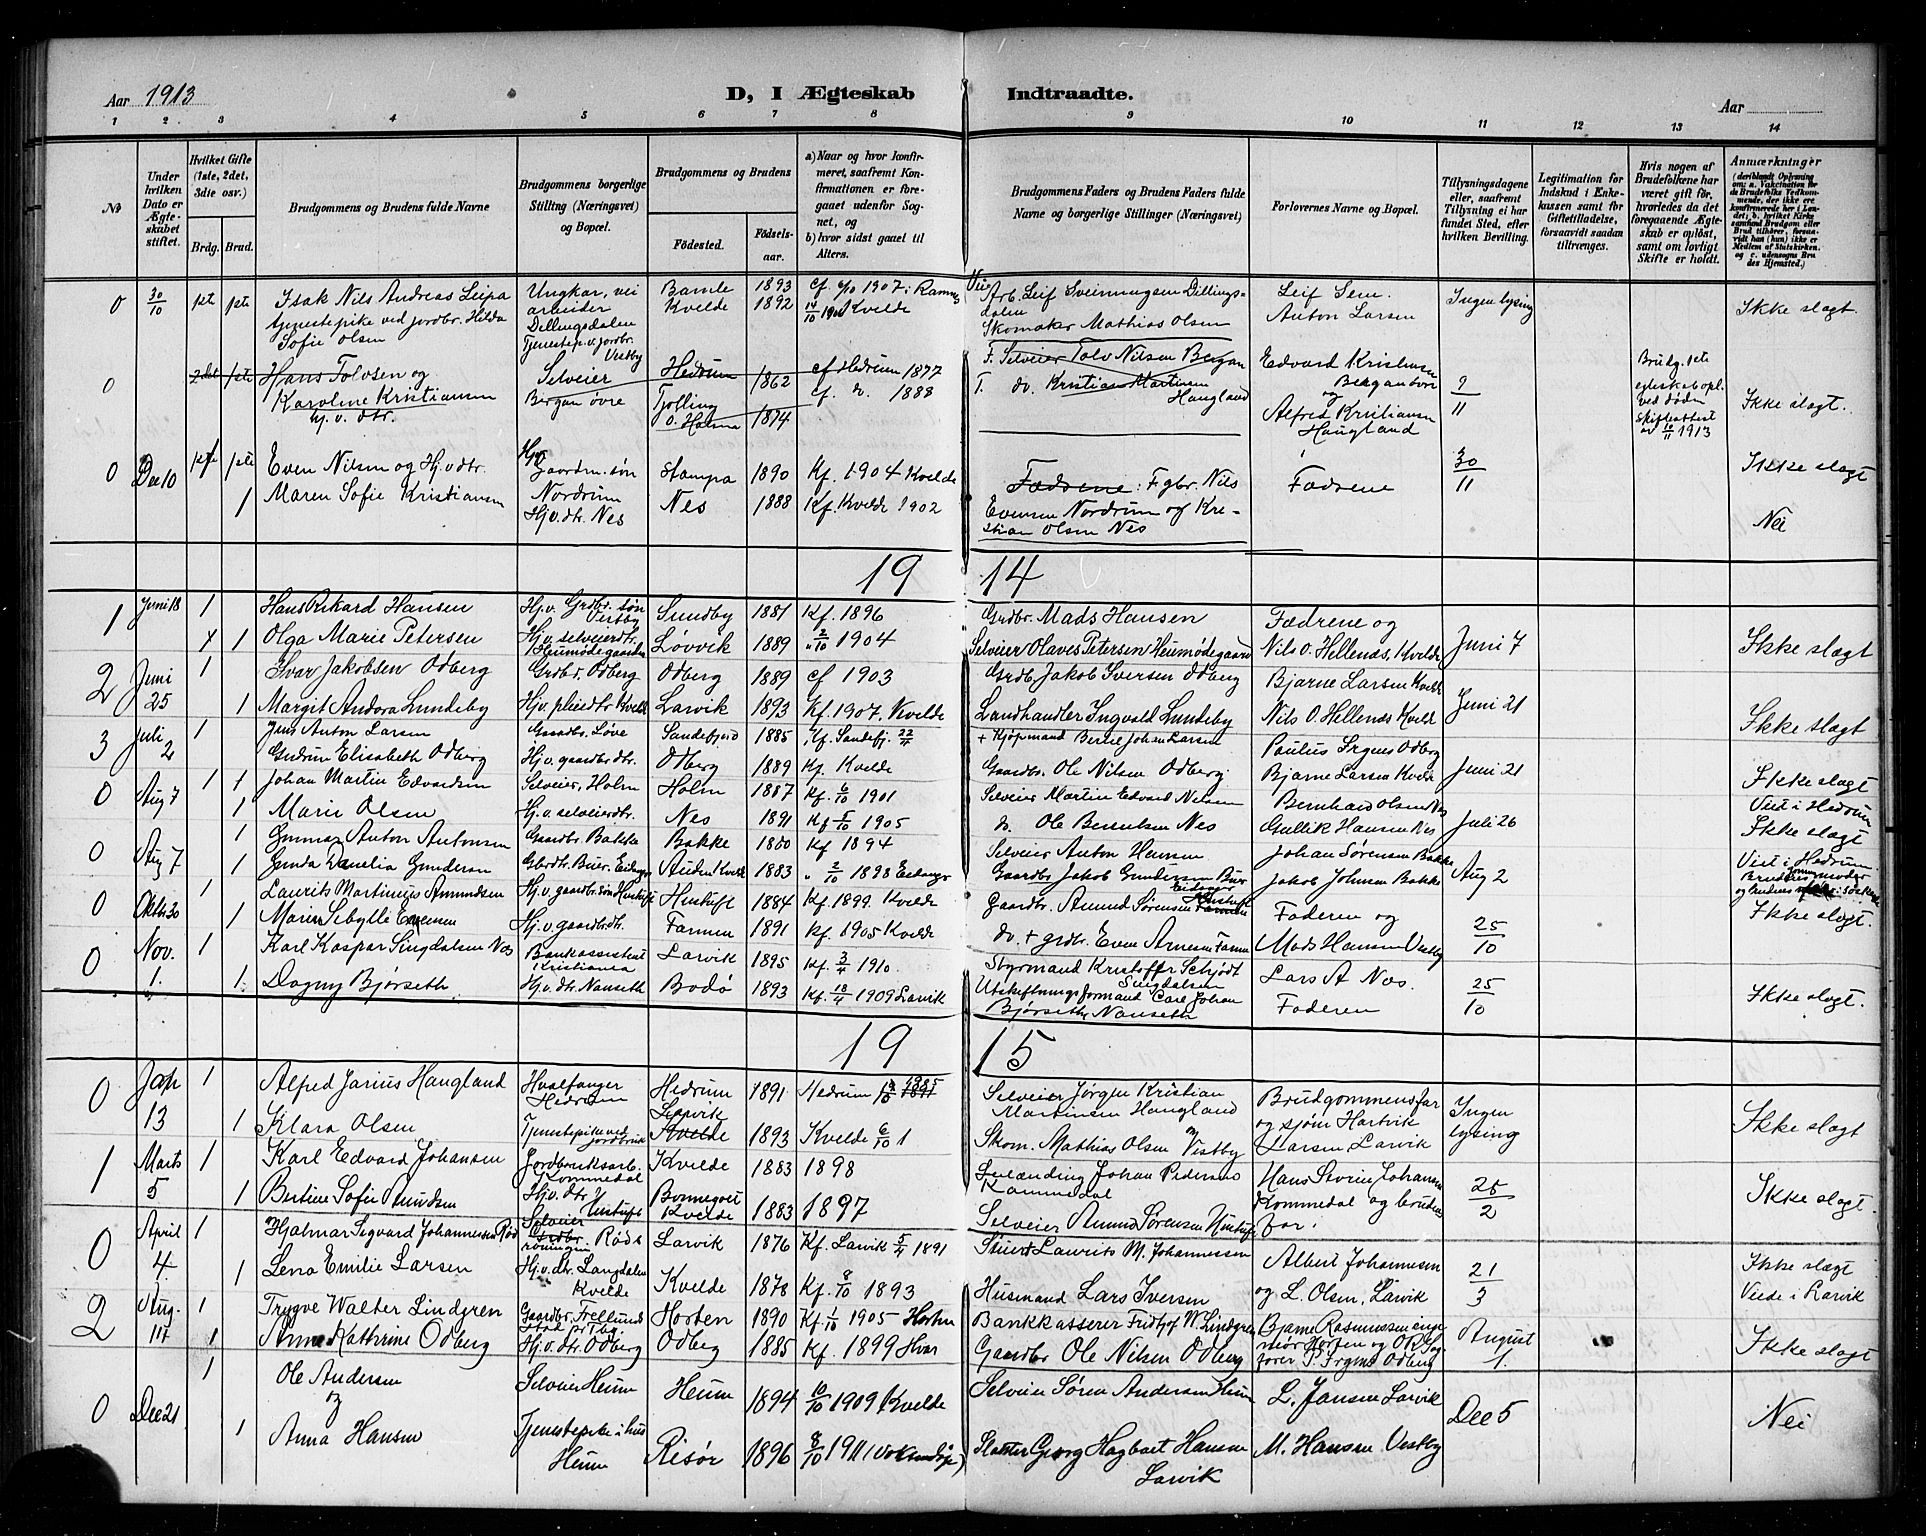 Aar 1913
D, I Ægteskab Indtraadte.
Aar
1 2 3 4 5 6 7 8 9 10 11 12 13 14
№
Under hvilken Dato er Ægteskabet stiftet.
Hvilket Gifte (1ste, 2det, 3die osv.)
Brdg. Brud.
Brudgommens og Brudens fulde Navne
Brudgommens borgerlige Stilling (Næringsvei) og Bopæl.
Brudgommens og Brudens
Fødested. Fødselsaar.
a) Naar og hvor konfirmeret, saafremt Konfirmationen er foregaaet udenfor Sognet, og
b) hvor sidst gaaet til Alters.
Brudgommens Faders og Brudens Faders fulde Navne og borgerlige Stillinger (Næringsvei)
Forlovernes Navne og Bopæl.
Tillysningsdagene eller, saafremt Tillysning ei har fundet Sted, efter hvilken Bevilling.
Legitimation for Indskud i Enkekassen samt for Giftetilladelse, forsaavidt saadan tiltrænges.
Hvis nogen af Brudefolkene har været gift før, hvorledes da det foregaaende Ægteskab er opløst, samt om lovligt Skifte er holdt.
Anmærkninger (deriblandt Oplysning om: a. Vaccination for de Brudefolks Vedkommende, der ikke ere konfirmerede her i Landet; b. hvilket Kirkesamfund Brudgom eller Brud tilhører, forsaavidt han (hun) ikke er Medlem af Statskirken, og c. udensogns Brudes Hjemsted.)
0 30/10 pt pte Isak Nils Andreas Leifsa Ungkar, vei Bamle 1893 cf. 1907 i Ramnes Arb. Leif Sveinungsen Dillings- Leif Sem. Ingen lysing Ikke slagt.
tjenestepike ved jordbr. Helda arbeider Kvelde 1892 14/10 1906 Kvelde dalen Anton Larsen
Sofie Olsen Dillingsdalen Skomaker Mathias Olsen
Tjenestep. v. jordbr. Vestby
0 2det pte Hans Tolvsen og Selveier Hedrum 1862 cf Hedrum 1877 F. Selveier Tolv Nilsen Bergan Edvard Kristensen Brudg. 1ste
Karoline Kristiansen Bergan øvre Tjølling 1874 cf. 1888 T. do. Kristian Martinsen Haugland Bergan øvre 9/11 egteskab opl. ved døden Ikke slagt.
hj. v. dtr. o. Holma og Alfred Kristiansen Haugland skifteattest av 10/11 1913
0 Dec 10 pte Even Nilsen og Hj. v. dtr. Gaardm. søn Stampa 1890 Kf. 1904 Kvelde Fædrene: Fgbr. Nils Fædrene 30/11 Ikke slagt
1 Maren Sofie Kristiansen Nordrum Nes 1888 Kf. Kvelde 1902 Evensen Nordrum og Kri- Nei
Hj. v. dtr. Nes stian Olsen Nes
19 14
1 Juni 18 1 Hans Rikard Hansen Hj. v. Grdbr. søn Vestby Sundby 1881 Kf. 1896 Grdbr. Mads Hansen Fædrene og
1 Olga Marie Petersen Hj. v. selveierdtr. Heumødegaarden Løvvik 1889 2/10 1904 Selveier Olaves Petersen Heumødegaard Nils O. Hellenes, Kvelde Juni 7 Ikke slagt
2 Juni 1 Ivar Jakobsen Odberg Grdbr. Odberg Odberg 1889 cf 1903 Grdb. Jakob Iversen Odberg Bjarne Larsen Kvelde
25 1 Margit Andora Lundeby Hj. v. pleiedtr. Kvelde Larvik 1893 Kf. 1907. Kvelde Landhandler Ingvald Lundeby Nils O. Hellenes Kvelde Juni 21 Ikke slagt
3 Juli 1 Jens Anton Larsen Gaardbr. Løve Sandefjord 1885 Kf. Sandefj. + Kjøpmand Bernt Johan Larsen Paulus Irgens Odberg
2 Gudrun Elisabeth Odberg Hj. v. gaardbr. dtr. Odberg 1889 Kf. Kvelde Gaardbr. Ole Nilsen Odberg Bjarne Larsen Kvelde Juni 21 Ikke slagt
0 Aug 7 1 1 Johan Martin Edvardsen Selveier, Holm Holm 1887 Kf. 6/10 1901 Selveier Martin Edvard Nilsen Bernhard Olsen Nes Viet i Hedrum
1 Marie Olsen Hj. v. selveierdtr. Nes 1891 Kf 5/10 1905 do. Ole Berentsen Nes Gullik Hansen Nes Juli 26 Ikke slagt
0 Aug 7 1 Gunnar Anton Antonsen Gaardbr. Bakke Bakke 1880 Kf 1894 Selveier Anton Hansen Johan Sørensen Bakke Viet i Hedrum
1 Gunda Danelia Gundersen Gbrdtr. Bur, Eidanger Auden Kvelde 1883 2/10 1898 Eidanger Gaardbr. Jakob Gundersen Bur Eidanger Jakob Johnsen Bakke Aug 2
0 Oktbr. 30 1 Laurits Martinius Amundsen Hj. v. gaardbr. søn Hustuft Hustuft 1884 Kf. 1899. Kvelde Gaardbr. Amund Sørensen Hustuft Faderen og
1 Maren Sibylle Evensen Hj. v. gaardb. dtr. Farmen 1891 Kf. 1905 Kvelde do. + grdbr. Even Arnesen Farmen Mads Hansen Vestby 25/10 Ikke slagt.
0 Nov. 1 Karl Kaspar Singdalsen Nos Bankassistent Kristiania Larvik 1895 Kf. 3/4 1910. Styrmand Kristoffer Schjødt Singdalsen Lars A Nos.
1. 1. Dagny Bjørseth Hj. v. dtr. Nanseth Bodø 1893 Kf. 18/4 1909 Larvik Utskiftningsformand Carl Johan Bjørseth, Nanseth Faderen 25/10 Ikke slagt.
19 15
0 Jan 1 Alfred Jarius Haugland Hvalfanger Hedrum Hedrum 1891 Hedrum Selveier Jørgen Kristian Martinsen Haugland Brudgommens far Ingen
13 1 Klara Olsen Tjenestepike ved jordbruk Larvik Kvelde 1893 Kvelde 6/10 1 Skom. Mathias Olsen Vestby og sjøm Hartvik Larsen Larvik lysing Ikke slagt
1 Marts 1 Karl Edvard Johansen Jordbruksarb. Kommedal Kvelde 1883 1898 Johan Pedersens Kommedal Hans Severin Johansen 25/2
5 1 Bertine Sofie Amundsen Hj. v. dtr. Hustuft Bonnegolt Kvelde 1883 1897 Selveier Amund Sørensen Hustuft Kommedal og brudens far. Ikke slagt.
0 April 1 Hjalmar Sigvard Johannessen Rød Selveier Røds Larvik 1876 Kf. Larvik 5/4 1891 Stuert Laurits M. Johannessen Albert Johannessen Ikke slagt
4. 1 Lena Emilie Larsen Hj. v. dtr. Langdalen Kvelde Kvelde 1878 Kf. 8/10 1893 Husmand Lars Iversen og L. Olsen, Larvik 21/3 Viede i Larvik
2 Aug. 1 Trygve Walter Lindgren Gaardbr. Frellund Horten 1890 Kf. 1/10 1905 Horten Bankkasserer Fridtjof W Lindgren Bjarne Rasmussen inge- August
1 Anna Kathrine Odberg Hj. v. dtr. Odberg Odberg 1885 Kf. 1899 Gaardbr Ole Nilsen Odberg niør Horten og P. Irgens Odberg 1. Ikke slagt
0 1 Ole Andersen Selveier Heum Heum 1894 10/10 1909 Kvelde Selveier Søren Andersen Heum L. Jansen Larvik
Dec 21 og Dec 5 Nei
1 Anna Hansen Tjenestepike i hus Heum Risør 1896 8/10 1911 Slagter Georg Hagbart Hansen Larvik M. Hansen Vestby